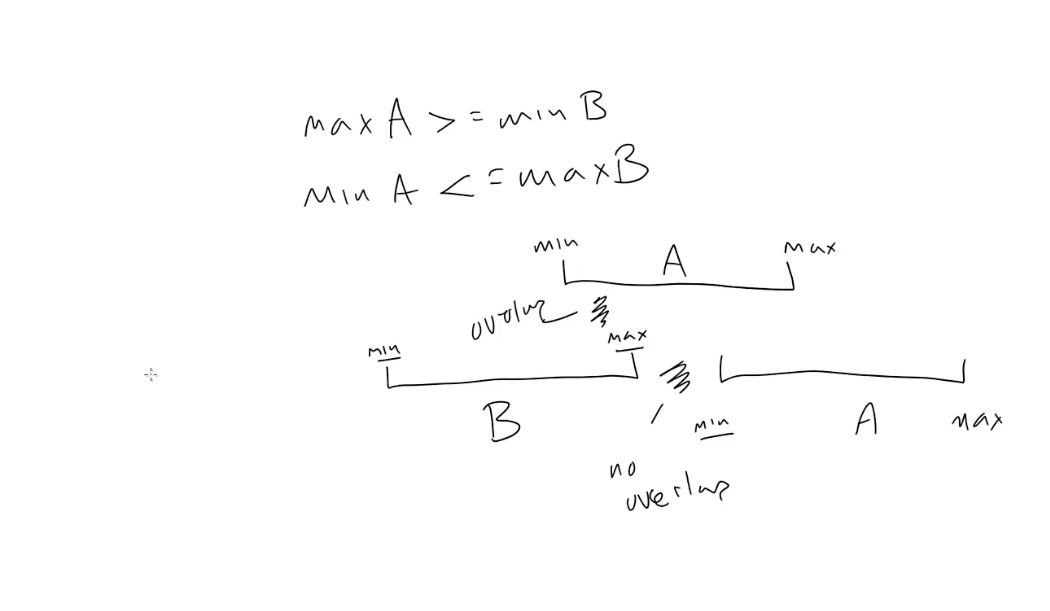 max A >= min B
min A <= max B
min A max
overlap
min max
B min A max
no
overlap